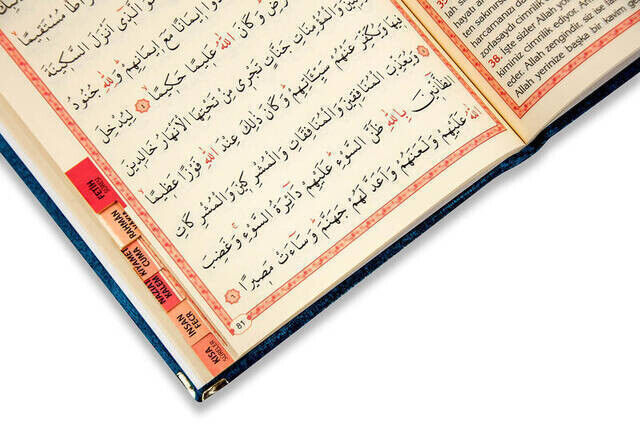 مُسْتَقِيمًا
الَّذِٓى اَنْزَلَ السَّكِينَةَ
اِيمَانًا مَعَ اِيمَانِهِمْ وَلِلّٰهِ جُنُودُ
وَكَانَ اللّٰهُ عَلِيمًا حَكِيمًا ٤ لِيُدْخِلَ
وَالْمُؤْمِنَاتِ جَنَّاتٍ تَجْرِى مِنْ تَحْتِهَا الْاَنْهَارُ خَالِدِينَ
فِيهَا وَيُكَفِّرَ عَنْهُمْ سَيِّـَٔاتِهِمْ وَكَانَ ذٰلِكَ عِنْدَ اللّٰهِ فَوْزًا عَظِيمًا
٥ وَيُعَذِّبَ الْمُنَافِقِينَ وَالْمُنَافِقَاتِ وَالْمُشْرِكِينَ وَالْمُشْرِكَاتِ
الظَّٓانِّينَ بِاللّٰهِ ظَنَّ السَّوْءِ عَلَيْهِمْ دَٓائِرَةُ السَّوْءِ وَغَضِبَ
اللّٰهُ عَلَيْهِمْ وَلَعَنَهُمْ وَاَعَدَّ لَهُمْ جَهَنَّمَ وَسَٓاءَتْ مَصِيرًا ٦
81
hayatı
ten sakınırsa
harcamanızı
zorlasaydı cimrilik
38. İşte sizler Allah
kiminiz cimrilik ediyor.
eder. Allah zengindir, siz ise
Allah yerinize başka bir kavim
FETİH
SURESİ
RAHMAN
CUMA
KIYAMET
KALEM
İNSAN
FECR
KISA
SURELER